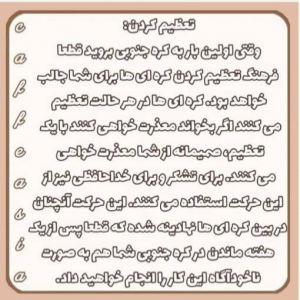 تعظیم کردن:
وقتی اولین بار به کره جنوبی بروید قطعا
فرهنگ تعظیم کردن کره ای ها برای شما جالب
خواهد بود. کره ای ها در هر حالت تعظیم
می کنند اگر بخواند معذرت خواهی کنند با یک
تعظیم، صمیمانه از شما معذرت خواهی
می کنند. برای تشکر و برای خداحافظی نیز از
این حرکت استفاده می کنند. این حرکت آنچنان
در بین کره ای ها نهادینه شده که قطعا پس از یک
هفته ماندن در کره جنوبی شما هم به صورت
ناخودآگاه این کار را انجام خواهید داد.